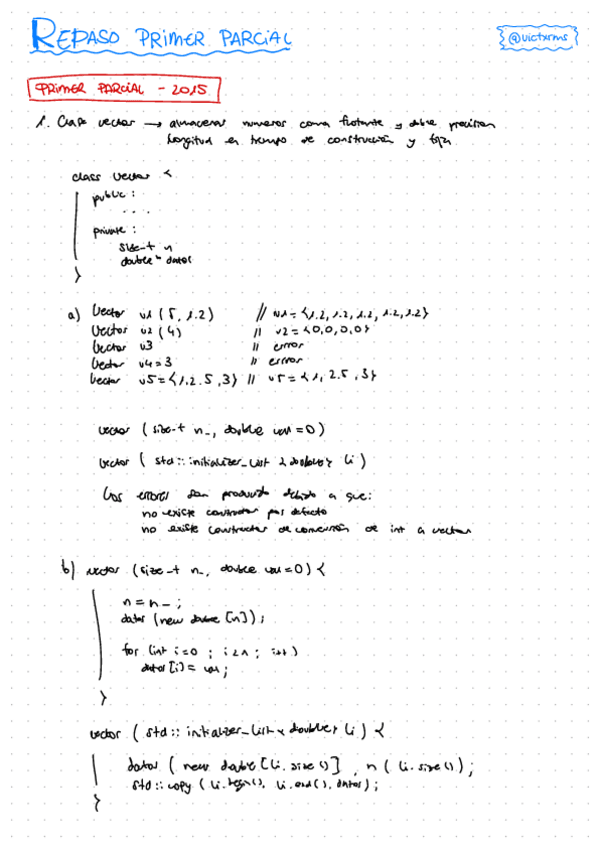 REPASO PRIMER PARCIAL
@victxrms
PRIMER PARCIAL - 2015
1. Clase vector → almacenar numeros coma flotante y doble precision
longitud en tiempo de construcción y fija
class Vector {
public :
. . .
private :
size_t n
double * datos
}
a) Vector v1 (5, 1.2) // v1 = {1.2, 1.2, 1.2, 1.2, 1.2}
Vector v2 (4) // v2 = {0,0,0,0}
Vector v3 // error
Vector v4 = 3 // error
Vector v5 = {1.2.5, 3} // v5 = {1, 2.5, 3}
vector (size_t n_, double val = 0)
vector ( std :: initializer_list <double> li )
Los errores son producido debido a que:
no existe constructor por defecto
no existe constructor de conversión de int a vector
b) vector (size_t n_, double val = 0) {
n = n_ ;
datos (new double [n]) ;
for (int i = 0 ; i < n ; i++)
datos [i] = val ;
}
vector ( std :: initializer_list < double> li ) {
datos ( new double [li. size ()] , n ( li. size ()) ;
std :: copy ( li. begin(), li. end(), datos) ;
}